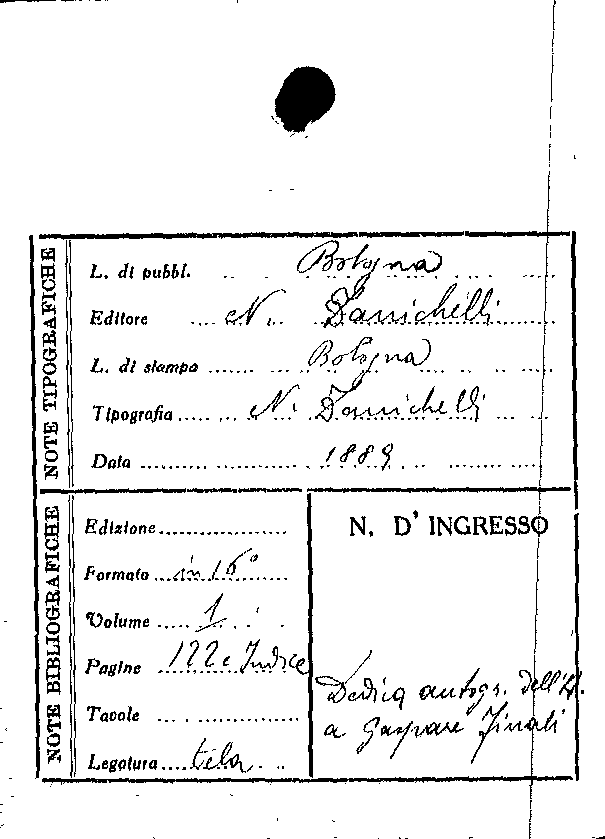 NOTE TIPOGRAFICHE
L. di pubbl. Bologna
Editore N. Zanichelli
L. di stampa Bologna
Tipografia N. Zanichelli
Data 1889
NOTE BIBLIOGRAFICHE
Edizione
Formato in 16°
Volume 1
Pagine 122 e Indice
Tavole
Legatura tela
N. D' INGRESSO
Dedica autogr. dell'A.
a Gaspare Finali